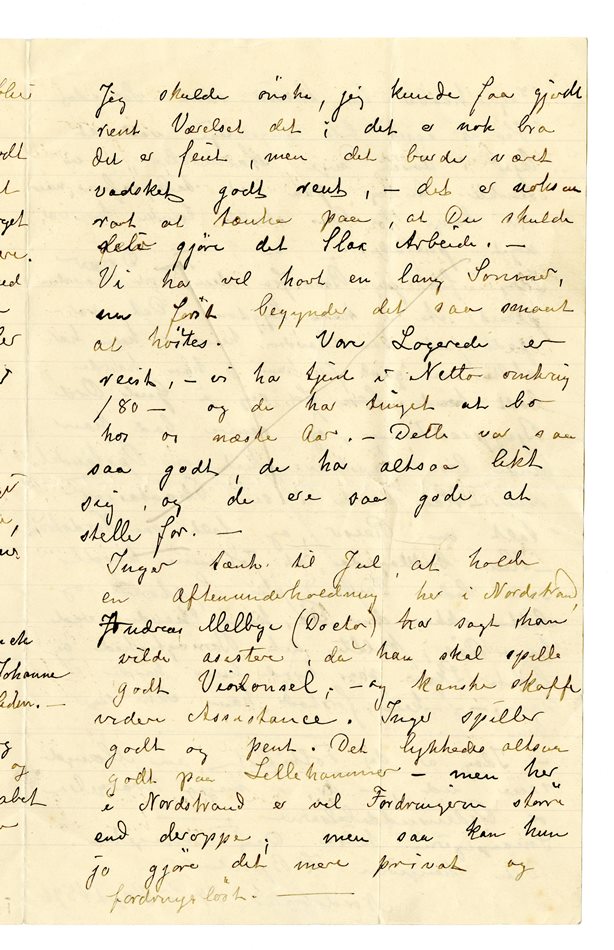 Jeg skulde önske, jeg kunde faa gjordt
rent Værelset det i det er nok bra
det er feiet, men det burde været
vadsket godt rent, – det er noksaa
rart at tænke paa, at Du skulde
selv gjöre det Slax Arbeide. –
Vi ha vel havt en lang Sommer,
nu först begynder det saa smaat
at höstes. Vore Logerede er
reist, – vi ha tjent i Netto omkring
180 – og de har tinget at bo
hos os næste Aar. – Dette var saa
saa godt, de har altsaa likt
sig, og de ere saa gode at
stelle for. –
Inger tænk. til Jul, at holde
en Aftenunderholdning her i Nordstrand,
Andreas Melbye (Doctor) har sagt han
vilde asistere, da han skal spille
godt Violonsel. – og kanske skaffe
videre Assistance. Inger spiller
godt og pent. Det lykkedes altsaa
godt paa Lillehammer – men her
i Nordstrand er vel Fordringerne större
end deroppe; men saa kan hun
jo gjöre det mere privat og
fordringslöst. –
Johanne